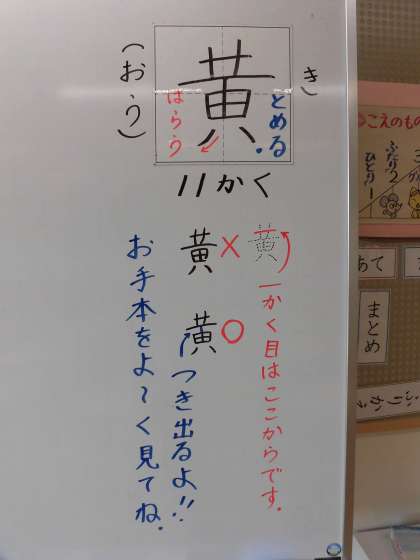 き
黄
とめる。
はらう
(おう)
11かく
黄
一かく目はここからです。
黄×
黄○
つき出るよ!!
お手本をよ〜く見てね。
こえのもの
ふたり2
ひとり1
あて
まとめ
ふりかえ